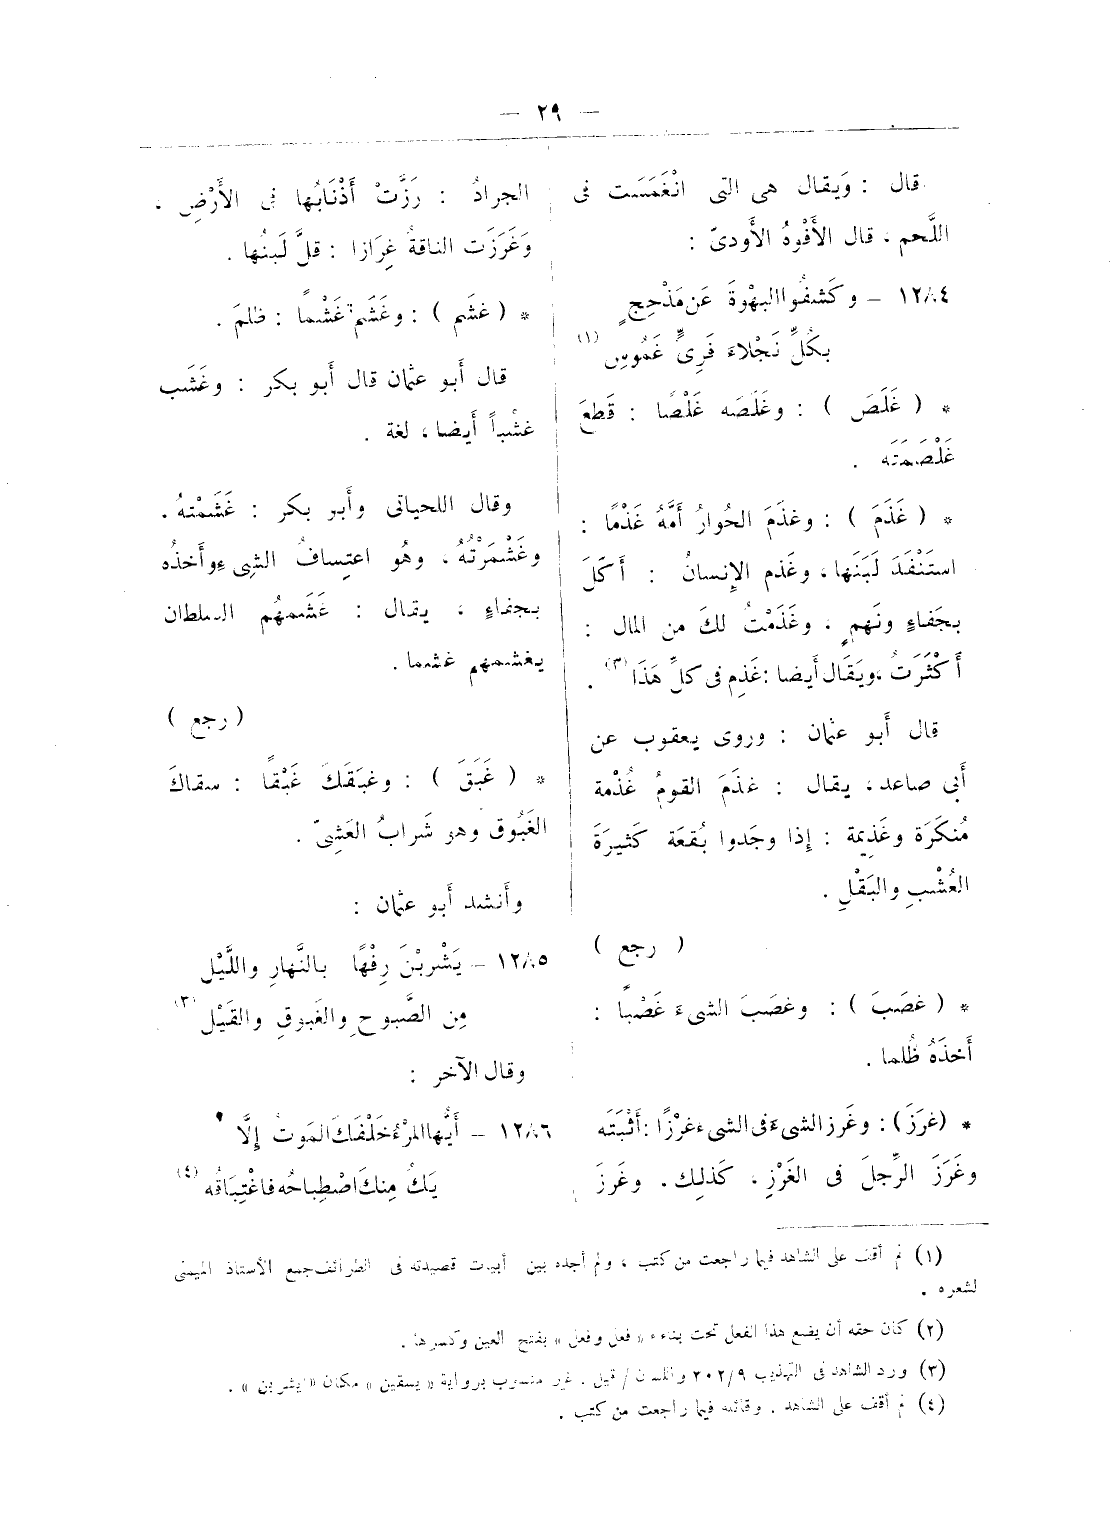 — ٢٩ —
قال : وَيقال هى التى انْغَمَسَت فى
اللَّحم ، قال الأَفْوهُ الأَودىّ :
١٢٨٤ – وكَشفُوا البهْوةَ عَن مَذْحِجٍ
بكُلِّ نَجْلاءَ فَرِىٍّ غَمُوسِ (١)
* ( غَلَصَ ) : وغَلَصَه غَلْصًا : قَطعَ
غَلْصَمتَه .
* ( غَذَمَ ) : وغذَمَ الحُوارُ أمَّهُ غَذْمًا :
استَنْفَدَ لَبَنَها ، وغَذم الإِنسانُ : أَكَلَ
بجَفاءٍ ونَهمٍ ، وغَذَمْتُ لكَ من المال :
أَكْثَرَتُ ، ويَقَال أَيضا : غَذِم فى كلِّ هَذَا (٢) .
قال أَبو عثمان : وروى يعقوب عن
أَبى صاعد ، يقال : غذَمَ القومُ غُذْمة
مُنكَرَة وغَذِيمة : إِذا وجَدوا بُقعَة كَثيرَةَ
العُشْبِ والبَقْلِ .
( رجع )
* ( غصَبَ ) : وغصَبَ الشىءَ غَصْبًا :
أَخذَهُ ظُلما .
* ( غرَزَ ) : وغَرز الشىءَ فى الشىء غرْزًا : أَثْبَتَه
وغَرَزَ الرِّجلَ فى الغَرْزِ ، كَذلِك . وغَرزَ
الجرادُ : رَزَّتْ أَذْنَابُها فى الأَرْضِ .
وَغَرَزَت الناقةُ غِرَازا : قلَّ لَبنُها .
* ( غشَم ) : وغَشَم غَشْمًا : ظلمَ .
قال أَبو عثمان قال أَبو بكر : وغَشَب
غشْباً أَيضا ، لغة .
وقال اللحيانى وأَبو بكر : غَشَمْتهُ .
وغَشْمَرْتُهُ ، وهُو اعتِسافُ الشىِءِ وأَخذُه
بجفاءٍ ، يقال : غَشَمهُم السلطان
يغشمهم غشما .
( رجع )
* ( غَبَقَ ) : وغبَقَكَ غَبْقًا : سقاكَ
الغَبُوق وهو شَرابُ العَشِىّ .
وأَنشد أَبو عثمان :
١٢٨٥ – يَشْربْنَ رِفْهًا بالنَّهارِ واللَّيْل
مِن الصَّبوحِ والغَبوقِ والقَيْل (٣)
وقال الآخر :
١٢٨٦ – أَيُّها المرْءُ خَلْفَكَ الموتُ إِلَّا
يَكُ مِنكَ اصْطِباحُه فاغْتِبَاقُه (٤)
(١) لم أقف على الشاهد فيما راجعت من كتب ، ولم أجده بين أبيات قصيدته فى الطرائف جمع الأستاذ الميمنى
لشعره .
(٢) كان حقه أن يضع هذا الفعل تحت بناء « فعل وفعل » بفتح العين وكسرها .
(٣) ورد الشاهد فى التهذيب ٢٠٢/٩ واللسان / قيل . غير منسوب برواية « يسقين » مكان « يشربن » .
(٤) لم أقف على الشاهد . وقائله فيما راجعت من كتب .